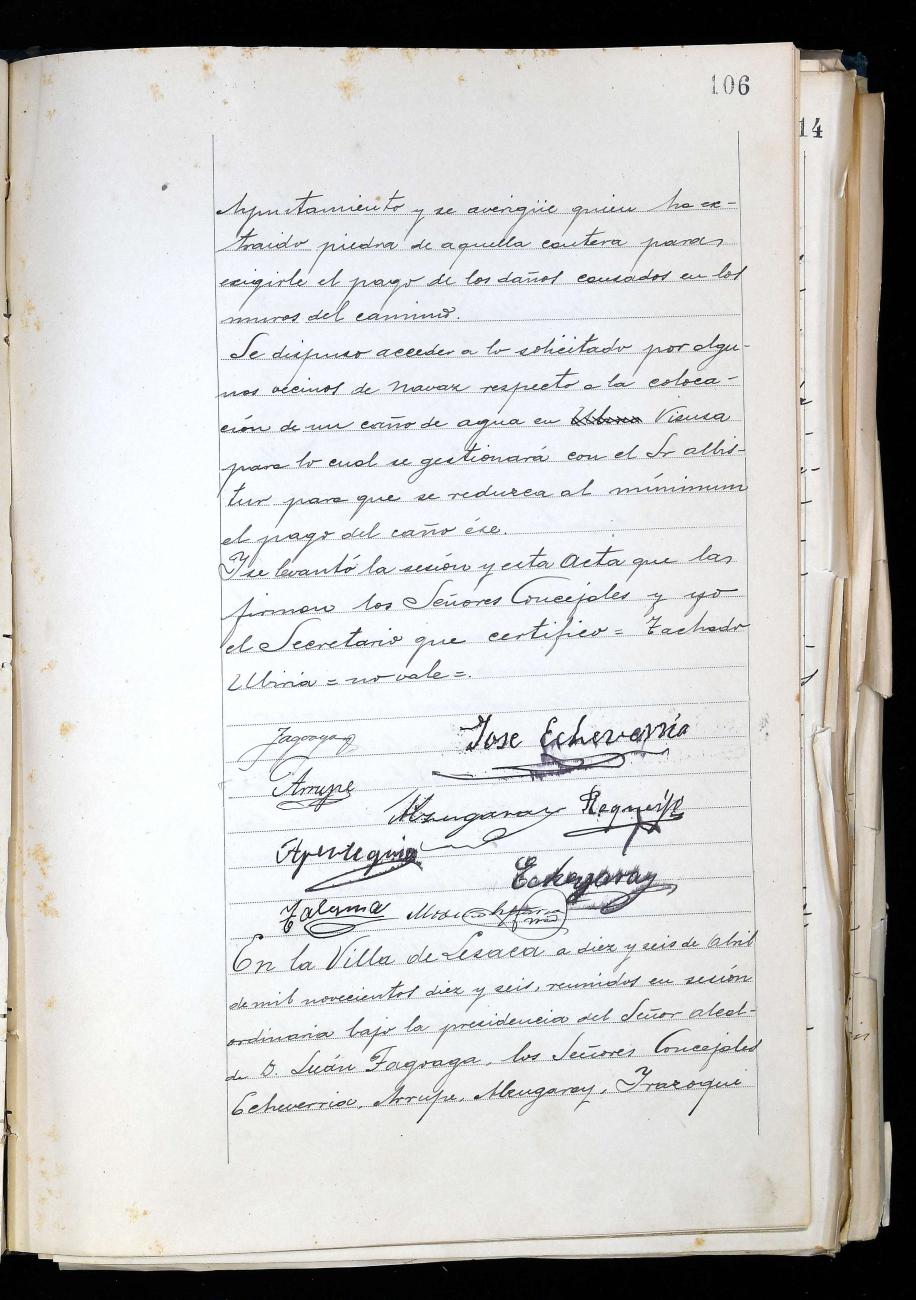 106
14
Ayuntamiento y se averigüe quien ha ex-
traido piedra de aquella cantera para
exigirle el pago de los daños causados en los
muros del camino.
Se dispuso acceder a lo solicitado por algu-
nos vecinos de Navaz respecto a la coloca-
ción de un caño de agua en Ubiria Visusa
para lo cual se gestionará con el Sr Albis-
tur para que se reduzca al mínimum
el pago del caño ése.
Y se levantó la sesión y esta Acta que las
firman los Señores Concejales y yo
el Secretario que certifico = Tachado
Ubiria = no vale =.
Fagoaga
Jose Echeverría
Arrupe
Alzugaray
Apesteguia
Echegaray
En la Villa de Lesaca a diez y seis de Abril
de mil novecientos diez y seis, reunidos en sesión
ordinaria bajo la presidencia del Señor Alcal-
de D. Fagoaga, los Señores Concejales
Echeverria, Arrupe, Alzugaray, Irazoqui